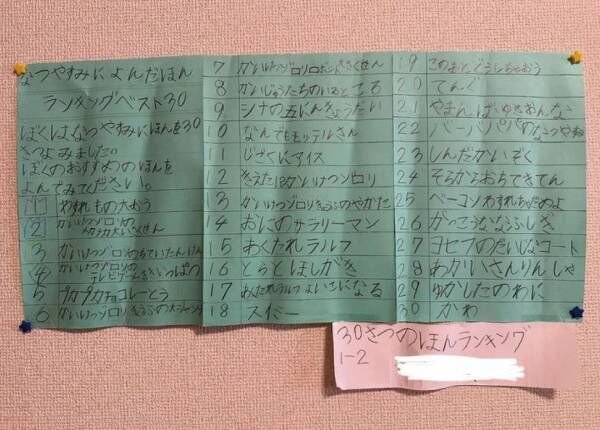 なつやすみによんだほん
ランキングベスト30
ぼくはなつやすみにほんを30
さつよみました。
ぼくのおすすめのほんを
よんでみてください。
1 わすれもの大おう
2 かいけつゾロリの
大さくせん
3 かいけつゾロリ
4 かいけつゾロリの
テレビゲームききいっぱつ
5 プカプカチョコレーとう
6 かいけつゾロリきょうふの大ジャンプ
7 かいけつゾロリ さくせん
8 かいじゅうたちのいるところ
9 シナの五にんきょうだい
10 なんでももってるさん
11 じごくにアイス
12 きえた!?かいけつゾロリ
13 かいけつゾロリきょうふのやかた
14 おにのサラリーマン
15 あくたれラルフ
16 とらとほしがき
17 あくたれラルフよいこになる
18 スイミー
19 このあとどうしちゃおう
20 てんぐ
21 やまんば ゆきおんな
22 バーバパパのなつやすみ
23 しんだかいぞく
24 そらからおちてきてん
25 ベーコンわすれちゃだめよ
26 がっこうななふしぎ
27 ヨセフのだいじなコート
28 あかいさんりんしゃ
29 ゆかしたのわに
30 かわ
30さつのほんランキング
1-2